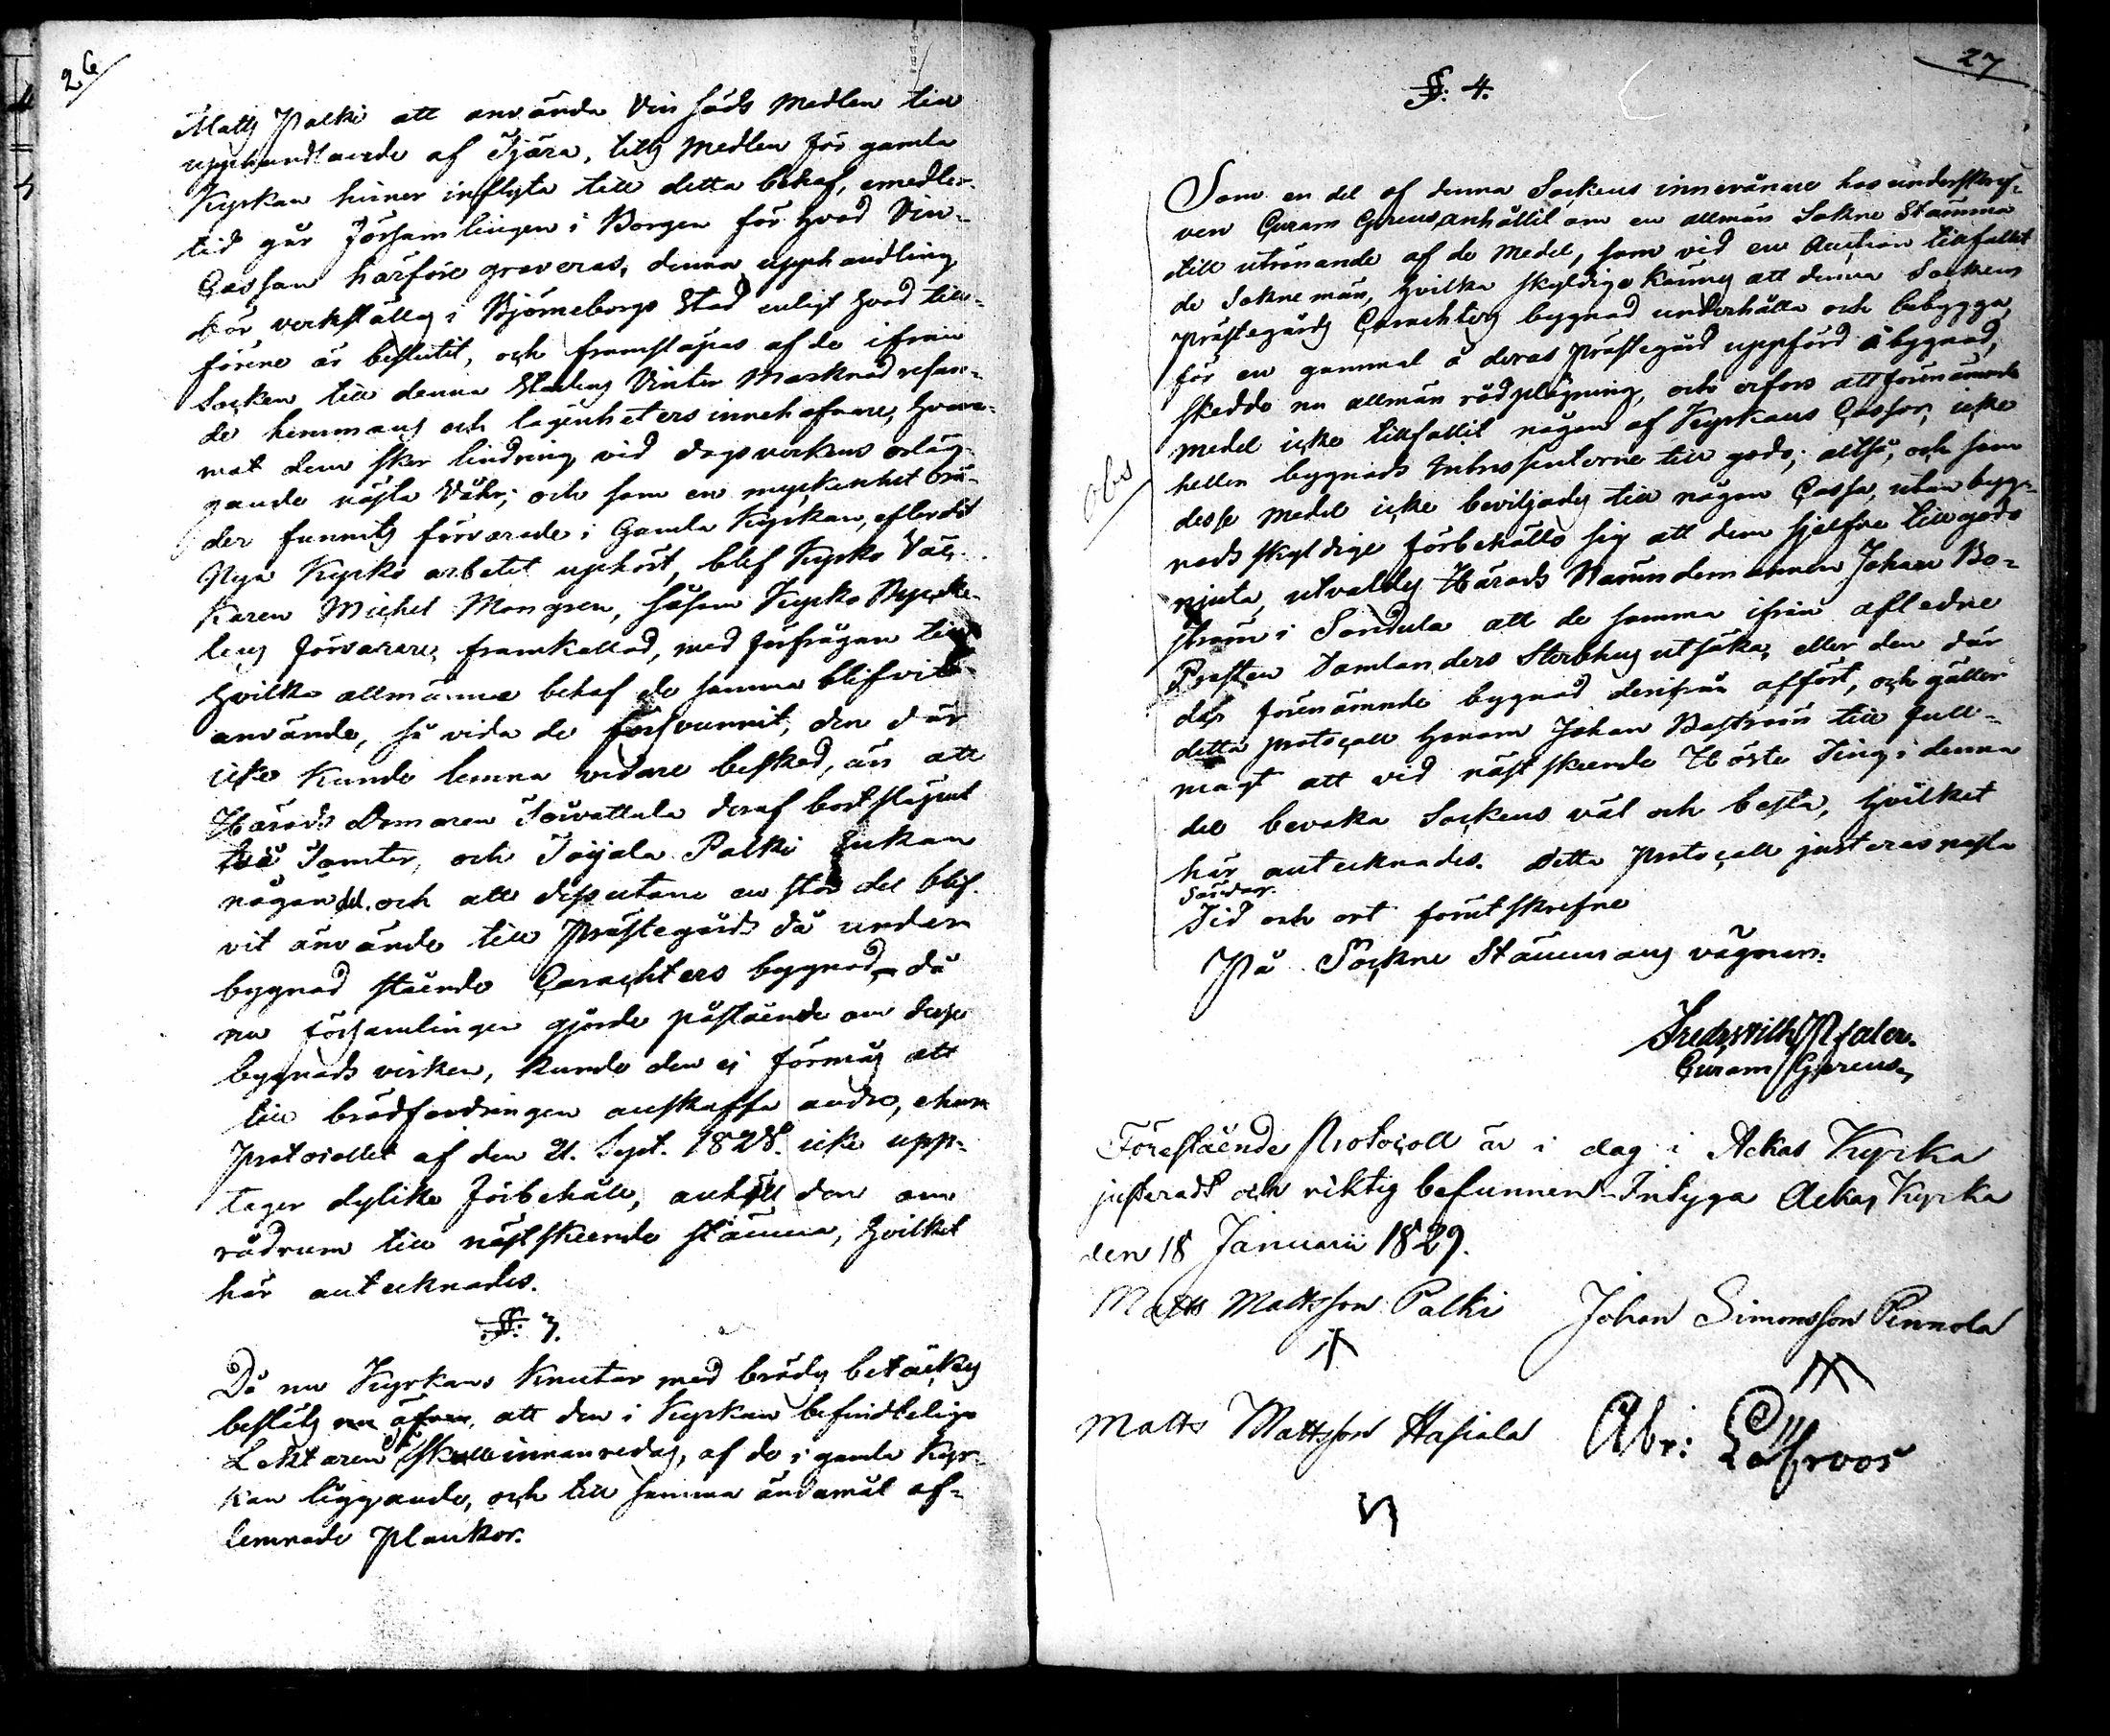 26
Matts Palki att använda Vin säds Medlen till
upphandlande af Tjära, tills Medlen för gamla
Kyrkan hinner inflyta till detta behof, emedler-
tid går Församlingen i Borgen för hvad Vin-
Cassan härföre graveras, denna upphandling
bör verkställas i Björneborgs Stad enligt hvad till-
förene är beslutit, och framsläpas af de ifrån
Socken till denna Stadens Vinter Marknad resan-
de hemmans och lägenheters innehafvare, hvare-
mot dem sker lindring vid dagsverkens
gande nästa Våhr; och som en myckenhet brä-
der funnits förvarade i Gamla Kyrkan, efter det
Nya Kyrko arbetet uphört, blef Kyrko Väc-
karen Michel Mongren, såsom Kyrko Nyckel-
lens förvarare framkallad, med förfrågan till
hvilka allmänna behof de samma blifvit
använde, så vida de försvunnit, den där
icke kunde lemna vidare besked, än att
Härads Domaren Soivattula deraf bortsläpat
två Tomter, och Toijala Palki Enkan
någon del. och att dessutom en stor del blif-
vit använde till Prästegårds då under
bygnad stående Carachters bygnad, då
nu församlingen gjorde påstående om desse
bygnads virken, kunde den ej förmås att
till brädfordringen anskaffa andre, ehuru
Protocollet af den 21. Sept. 1828. icke upp-
tager dylika förbehåll, anhöll den om
rådrum till nästskeende stämma, hvilket
här antecknades.
§: 3.
Då nu Kyrkans Knutar med bräder betäckas
beslöts nu äfven, att den i Kyrkan befindtelige
Lektaren skulle innanredas, af de i gamla Kyr-
kan liggande, och till samma ändamål af-
lemnade Plankor.
27
§: 4.
Som en del af denna Sockens innevånare hos underskref-
ven Curam Gerens anhållit om en allmän Sokne Stämma
till utrönande af de Medel, som vid en Auction tillfallit
de Sokne män, hvilka skyldige kännes att denna Sockens
Prästegårds Carachters bygnad underhålla och bebygga,
för en gammal å deras Prästegård uppförd åbygnad,
skedde nu allmän rådplägning, och erfors att förenämnde
medel icke tillfallit någon af Kyrkans Cassor, icke
heller bygnads Intressenterne till godo; altså, och som
Obs
desse Medel icke beviljades till någon Cassa, utan bygg-
nads skyldige förbehållo sig att dem sjelfve till godo
njuta, utvaldes Härads Nämndemannen Johan Bo-
ström i Sondula att de samma ifrån afledne
Prosten Tamlanders Sterbhus utsöka, eller den där
des förenämnde bygnad derifrån afföst, och gäller
detta protocoll honom Johan Boström till full-
magt att vid nästskeende Höste Ting i denna
del bevaka Sockens väl och besta, hvilket
här antecknades. Detta Protocoll justeras nästa
Söndag.
Tid och ort förutskrefne
På Sockne Stämmans vägnar.
Fredr Wilh Pfaler.
Curam Gerens
Förestående Protocoll är i dag i Ackas Kyrka
justeradt och riktig befunnen Intyga Ackas Kyrka
den 18 Januarii 1829.
Matts Mattsson Palki Johan Simonsson Pennola
Matts Mattsson Hasiala Abr: Löfroos